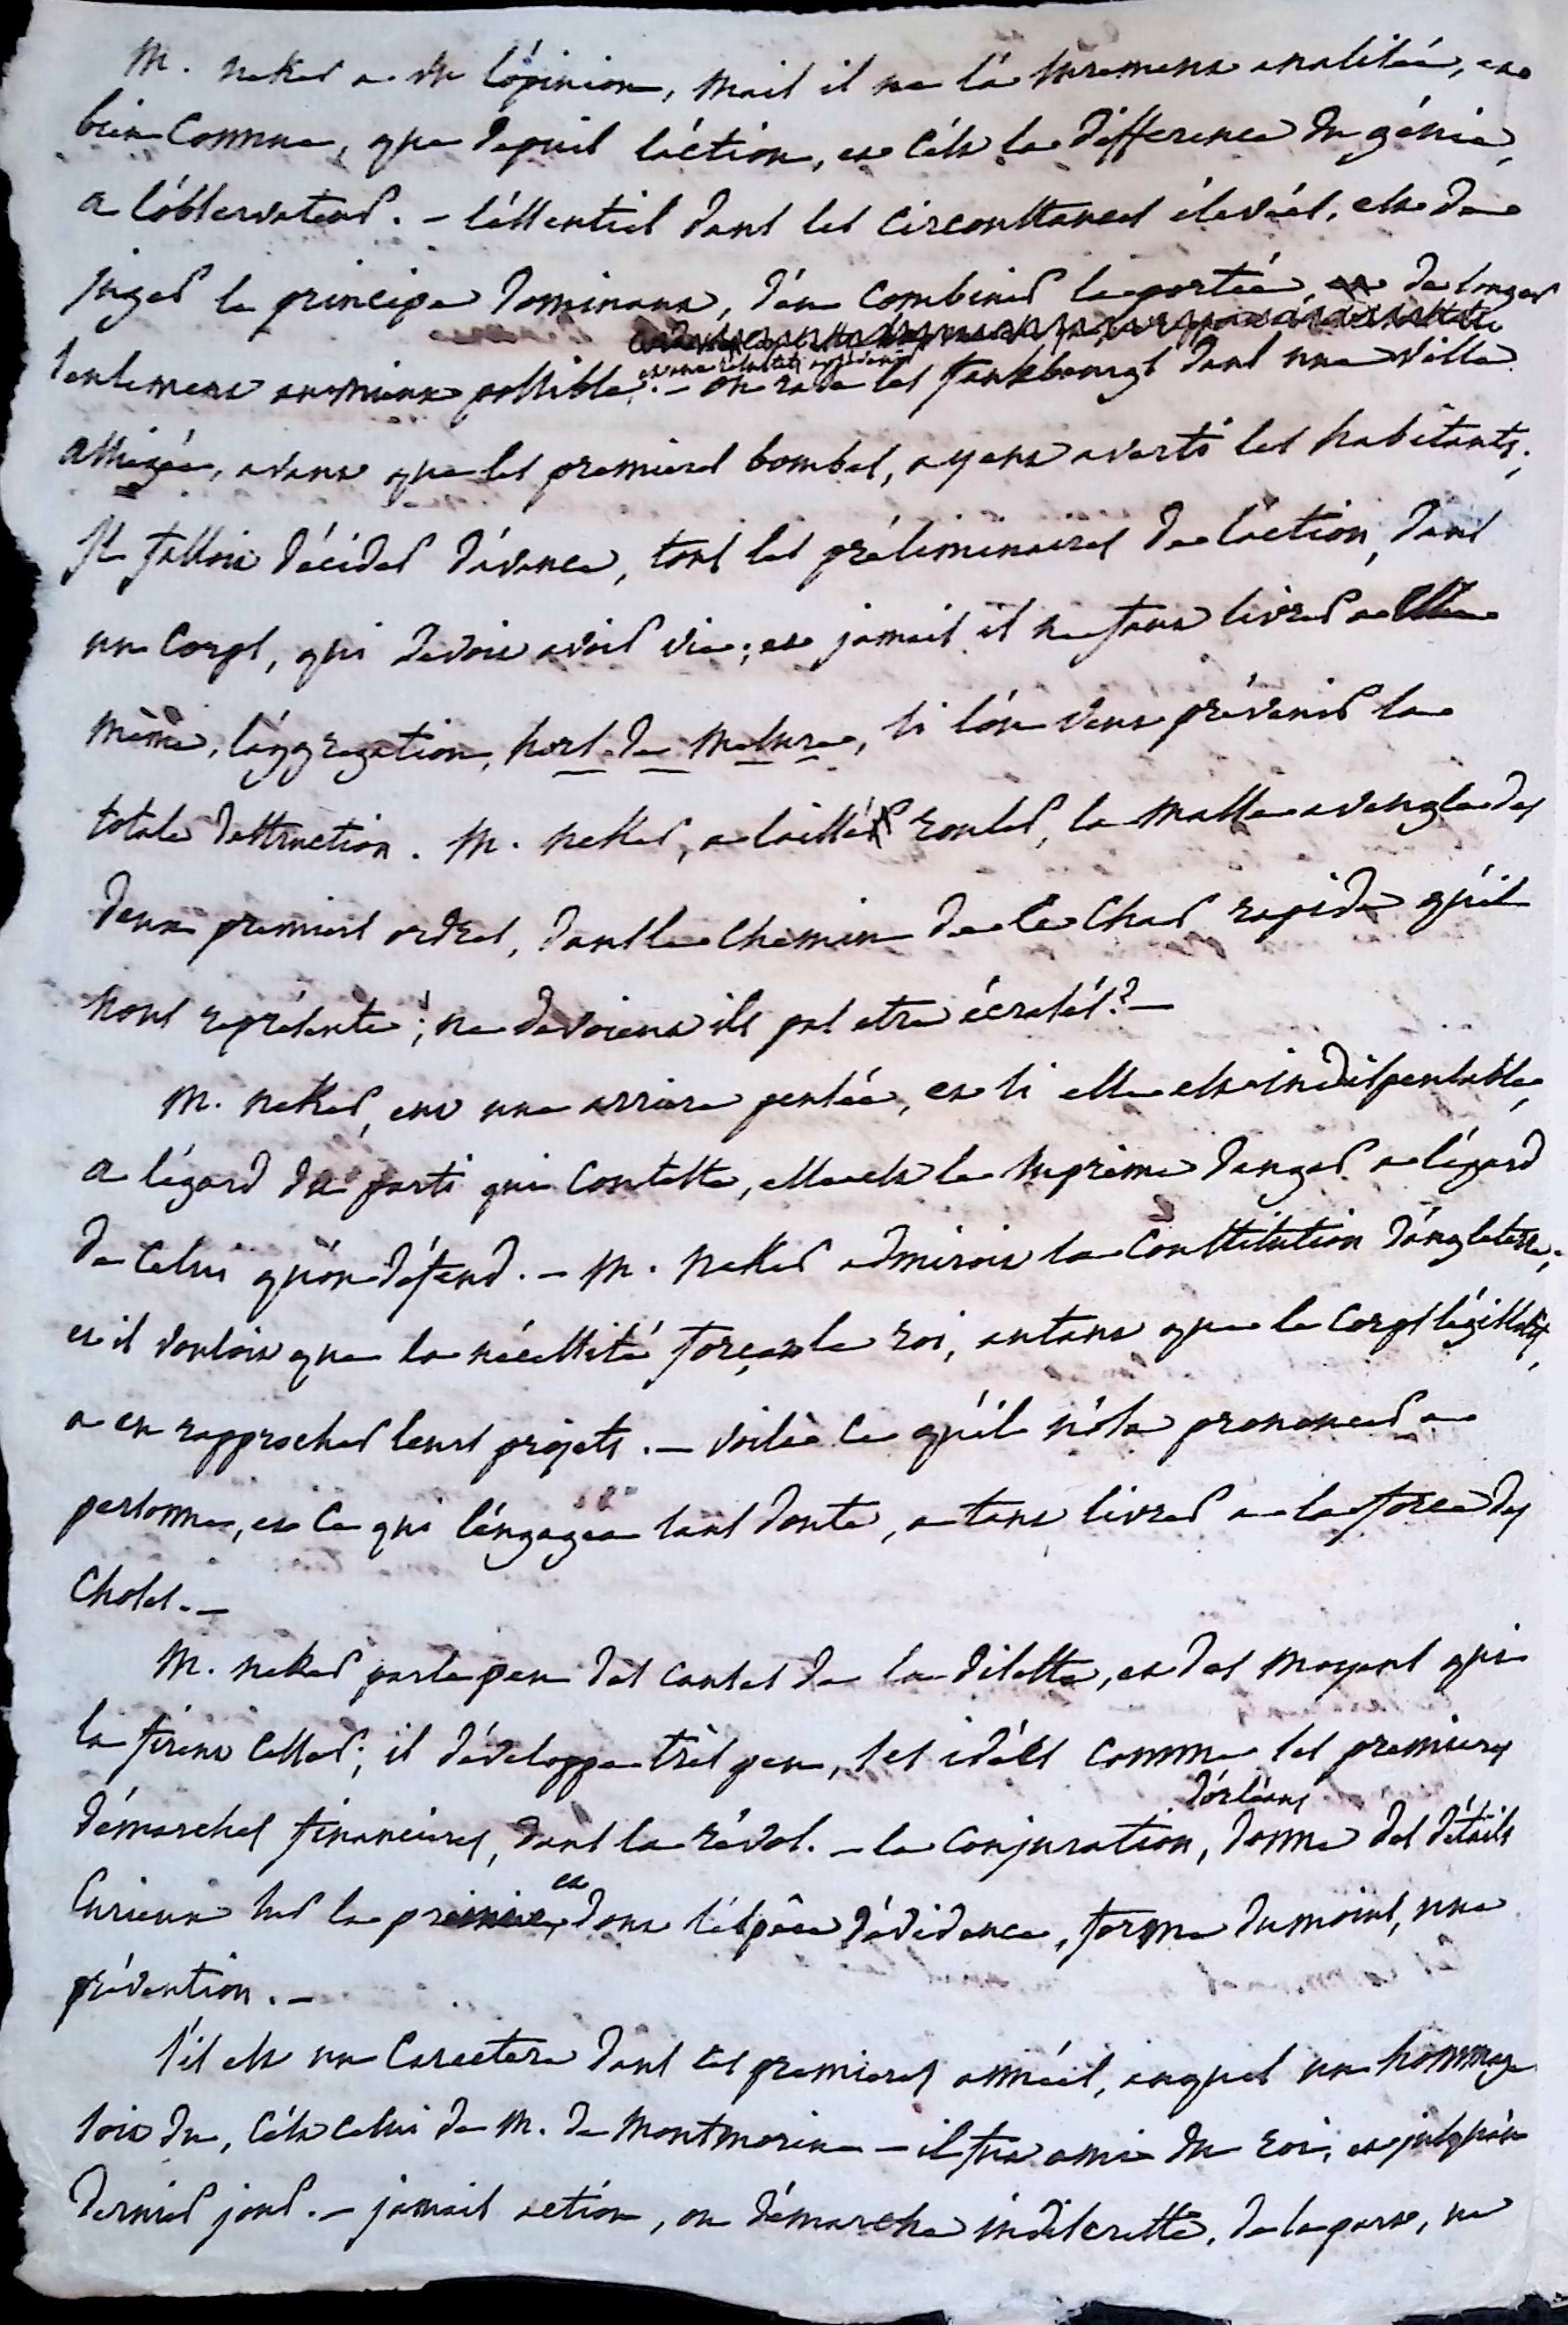 M. neker a vu l'opinion, mais il ne l'a surement analisée, et
bien connue, que depuis l'action, et c'est la difference du génie,
a l'observateur. - l'essentiel dans les circonstances élevées, est de
juger le principe dominant, d'en combiner la portée, de longer
et ses résultats
sentiment au mieux possible. - on rase les fauxbourgs dans une ville
assiegée, avant que les premieres bombes, ayent averti les habitants;
Il falloit décider d'avance, tous les préliminaires de l'action, dans
un corps, qui devoit avoir vie; et jamais il ne faut livrer a elle
même, l'aggregation, hors de mesure, si l'on veut prévenir la
totale destruction. M. neker, a laissé rouler, la masse aveugle des
deux premiers ordres, dans le chemin de ce char rapide qu'il
nous représente; ne devoient ils pas etre écrasés? -
M. neker, eut une arriere pensée, et si elle est indispensable,
a l'égard du parti qui conteste, elle est le suprême danger a l'égard
de celui qu'on défend. - M. neker admiroit la constitution d'angleterre;
et il vouloit que la nécessité forçat le roi, autant que le corps législatif,
a en rapprocher leurs projets. - voila ce qu'il n'osa prononcer a
personne, et ce qui l'engagea sans doute, a tant livrer a la force des
choses. -
M. neker parle peu des causes de la disette, et des moyens qui
la firent cesser; il développe très peu, ses idées comme ses premieres
démarches financieres, dans la révol. - la conjuration, donne des détails
d'orléans
curieux sur la premiere, et dont l'espèce d'évidence, forme du moins, une
prévention. -
s'il est un caractere dans ces premieres années, auquel un hommage
soit du, c'est celui de M. de Montmorin - il fut ami du roi, et jusqu'au
dernier jour. - jamais action, ou démarche indiscrette, de sa part, ne